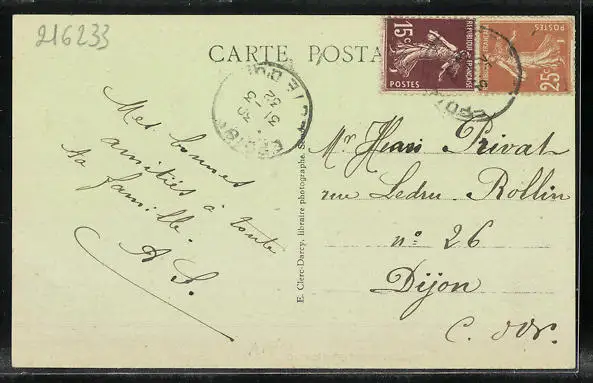 216233
CARTE POSTA
15c
REPUBLIQUE FRANÇAISE
POSTES
POSTES
25c
31-3
32
Mes bonnes
amitiés à toute
ta famille.
A S.
E. Clerc-Darcy, libraire photographe.
Mr Henri Privat
rue Ledru Rollin
n° 26
Dijon
C. d'Or.